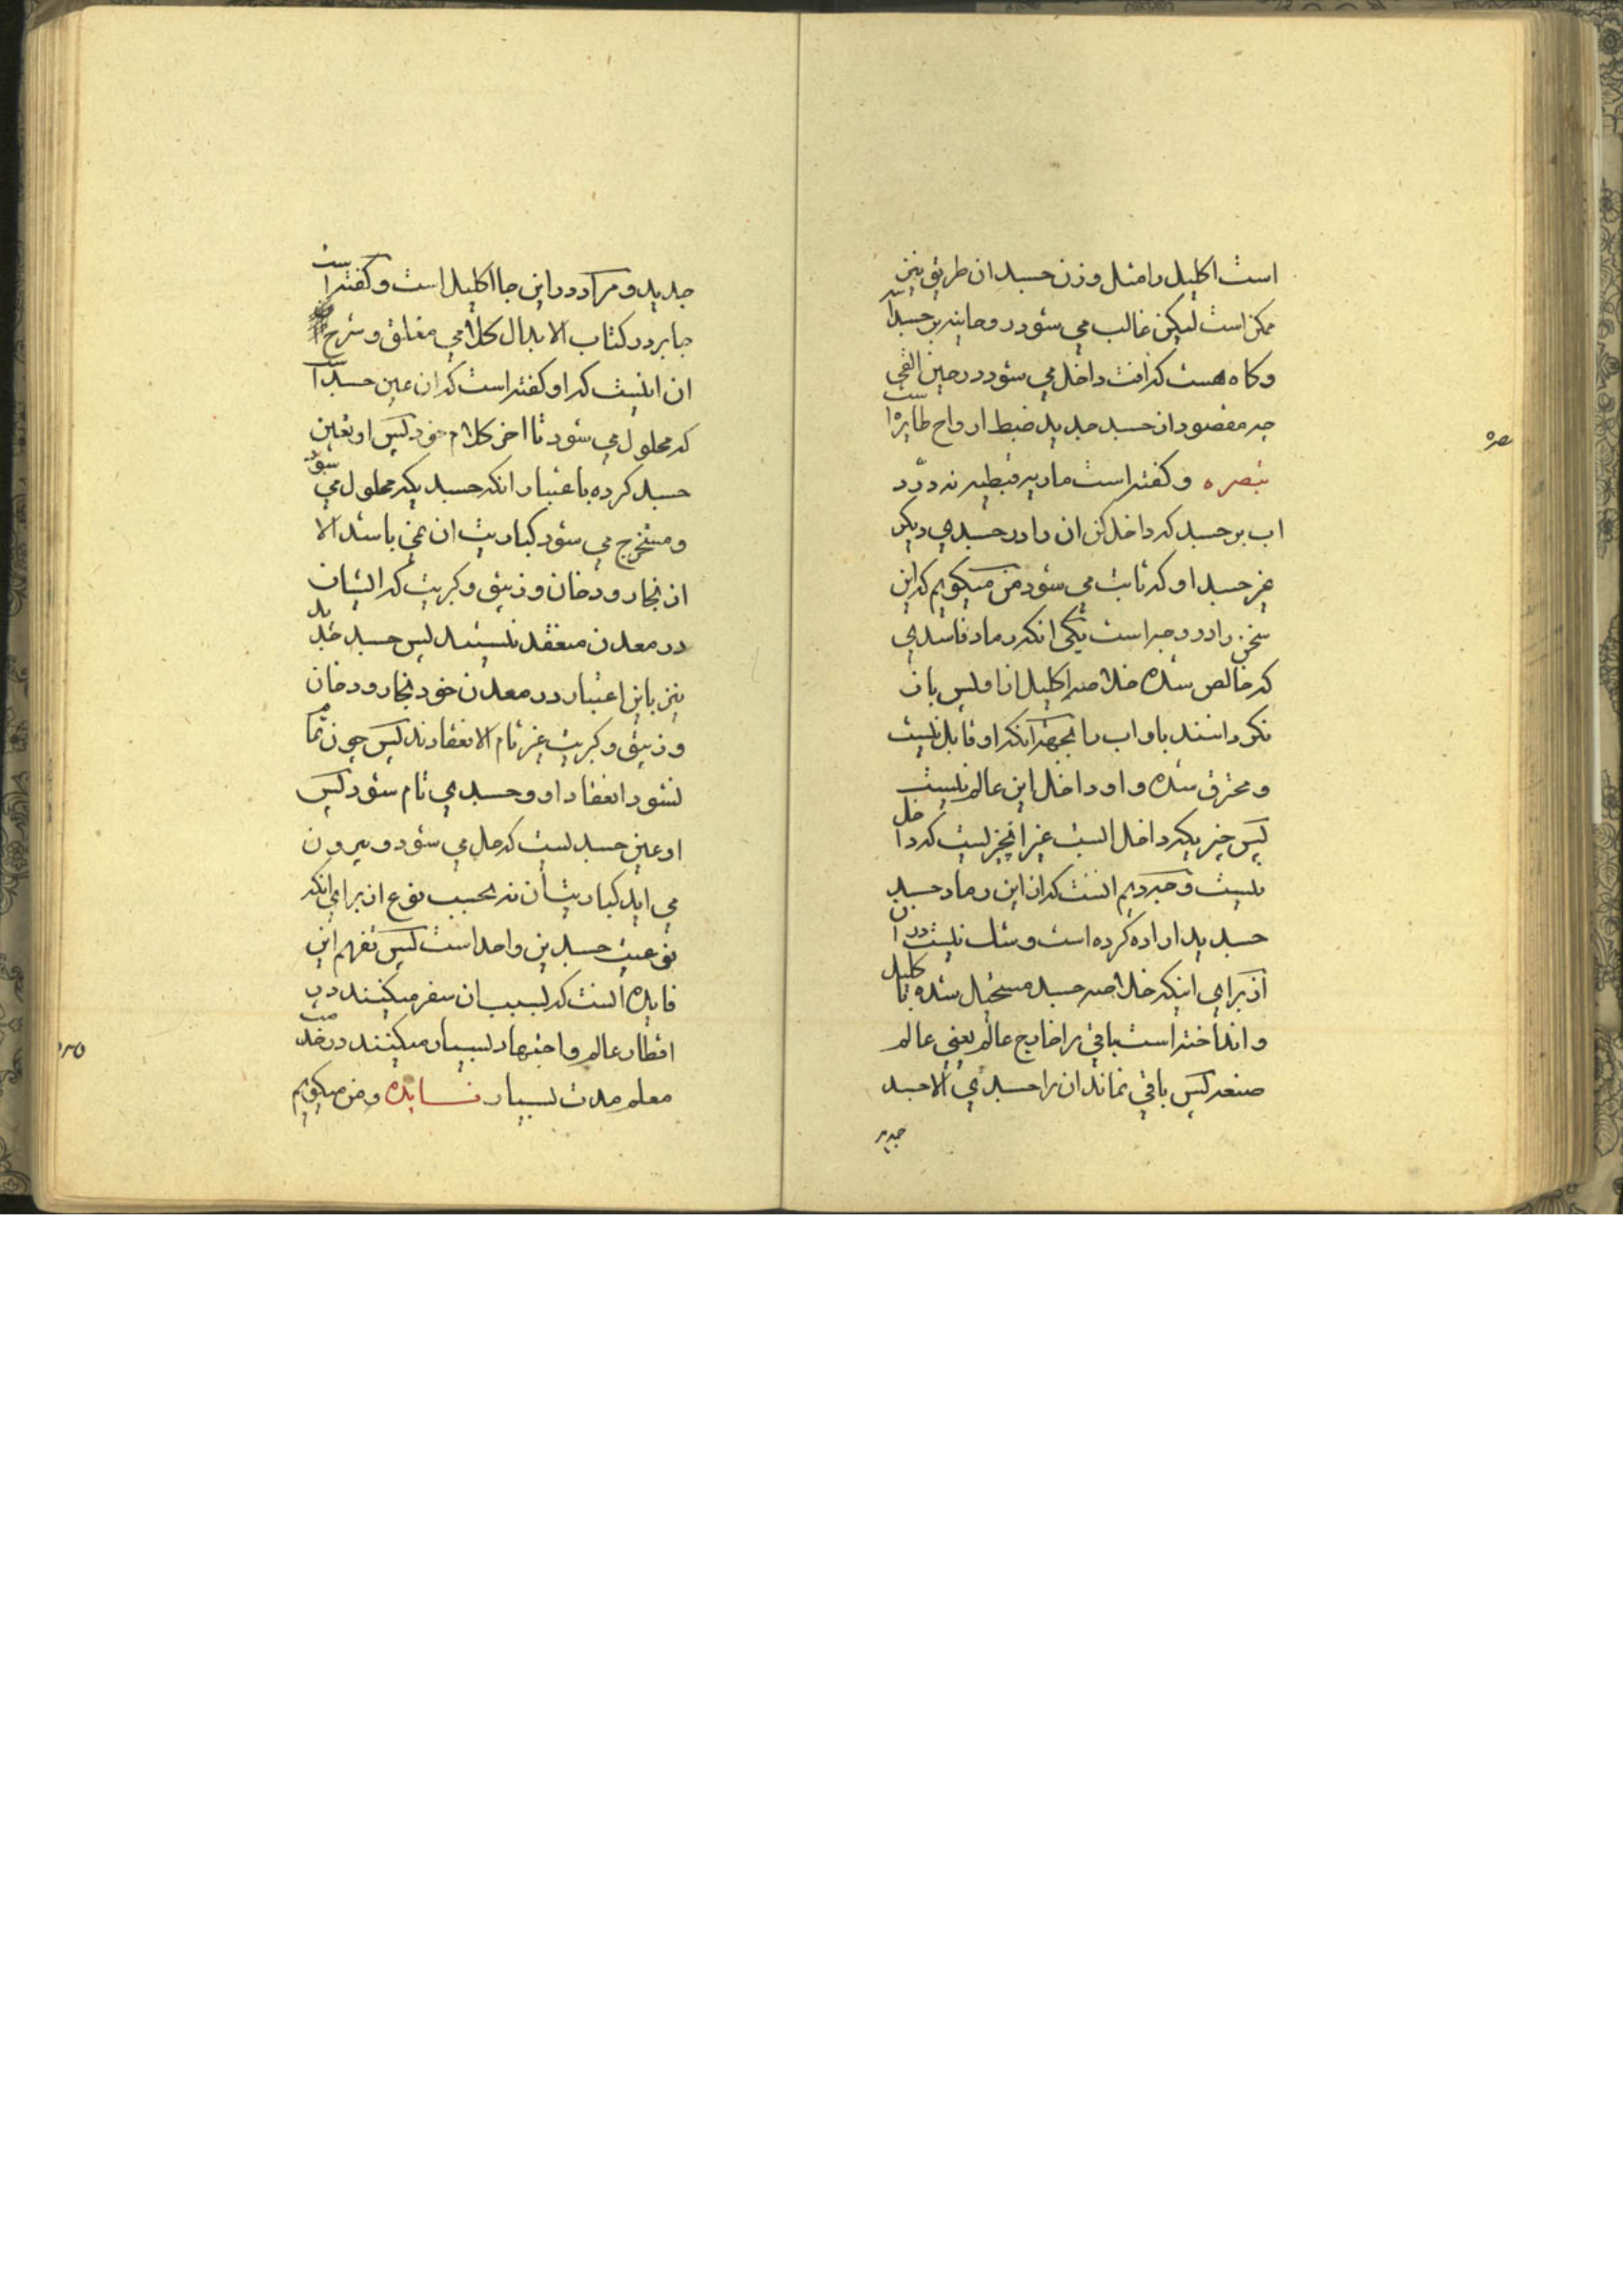 است اکلیل را مثل وزن جسد ان طریق نیز
ممکن است لیکن غالب می شود روحانیه بر جسد است
وکاه هست که افت داخل می شود در حین القی
چه مقصود از جسد جدید ضبط ارواح طایره است
تبصره وکفته است ماریه قبطیه نه درد
اب بر جسد که داخل کن ان را در جسدی دیکر
غیر جسد او که ثابت می شود من میکویم که این
سخن را دو وجه است یکی انکه رماد فاسدی
که خالص شده خلاصه اکلیل از او پس بان
نکردانند باو اب را بجهة انکه او قابل نیست
ومحترق شده واو داخل این عالم نیست
پس چیزیکه داخل است غیر انچیزیست که داخل
نیست وجه دویم انست که از این رماد جسد
جسد ید اراده کرده است وشک نیست در ان
از برای اینکه خلاصه جسد مستحیل شده با کلیل
وانداخته است باقی را خارج عالم یعنی عالم
صنعه پس باقی نماند ان را جسدی الا جسد
جدید
جدید ومراد در این جا اکلیل است وکفته است
جابر در کتاب الابدال کلامی مغلق وشرح
ان اینست که او کفته است که ان عین جسد است
که محلول می شود تا اخر کلام خود پس او تعین
جسد کرده باعتبار انکه جسدیکه محلول می شود
ومستخرج می شود کباریت ان نمی باشد الا
از بخار ودخان وزیبق وکبریت که ایشان
در معدن منعقد نیستند پس جسد جدید
نیز باین اعتبار در معدن خود بخار ودخان
وزیبق وکبریت غیر تام الانعقادند پس چون تمام
نشود انعقاد او وجسدی تام شود پس
او عین جسد نیست که حل می شود وبیرون
می اید کباریت ان نه بحسب نوع از برای انکه
نوعیت جسدین واحد است پس تفهم این
فایده انست که بسبب ان سفر میکنند در
اقطار عالم واجتهاد بسیار میکنند در خدمت
معلم مدت بسیار فایده ومن میکویم